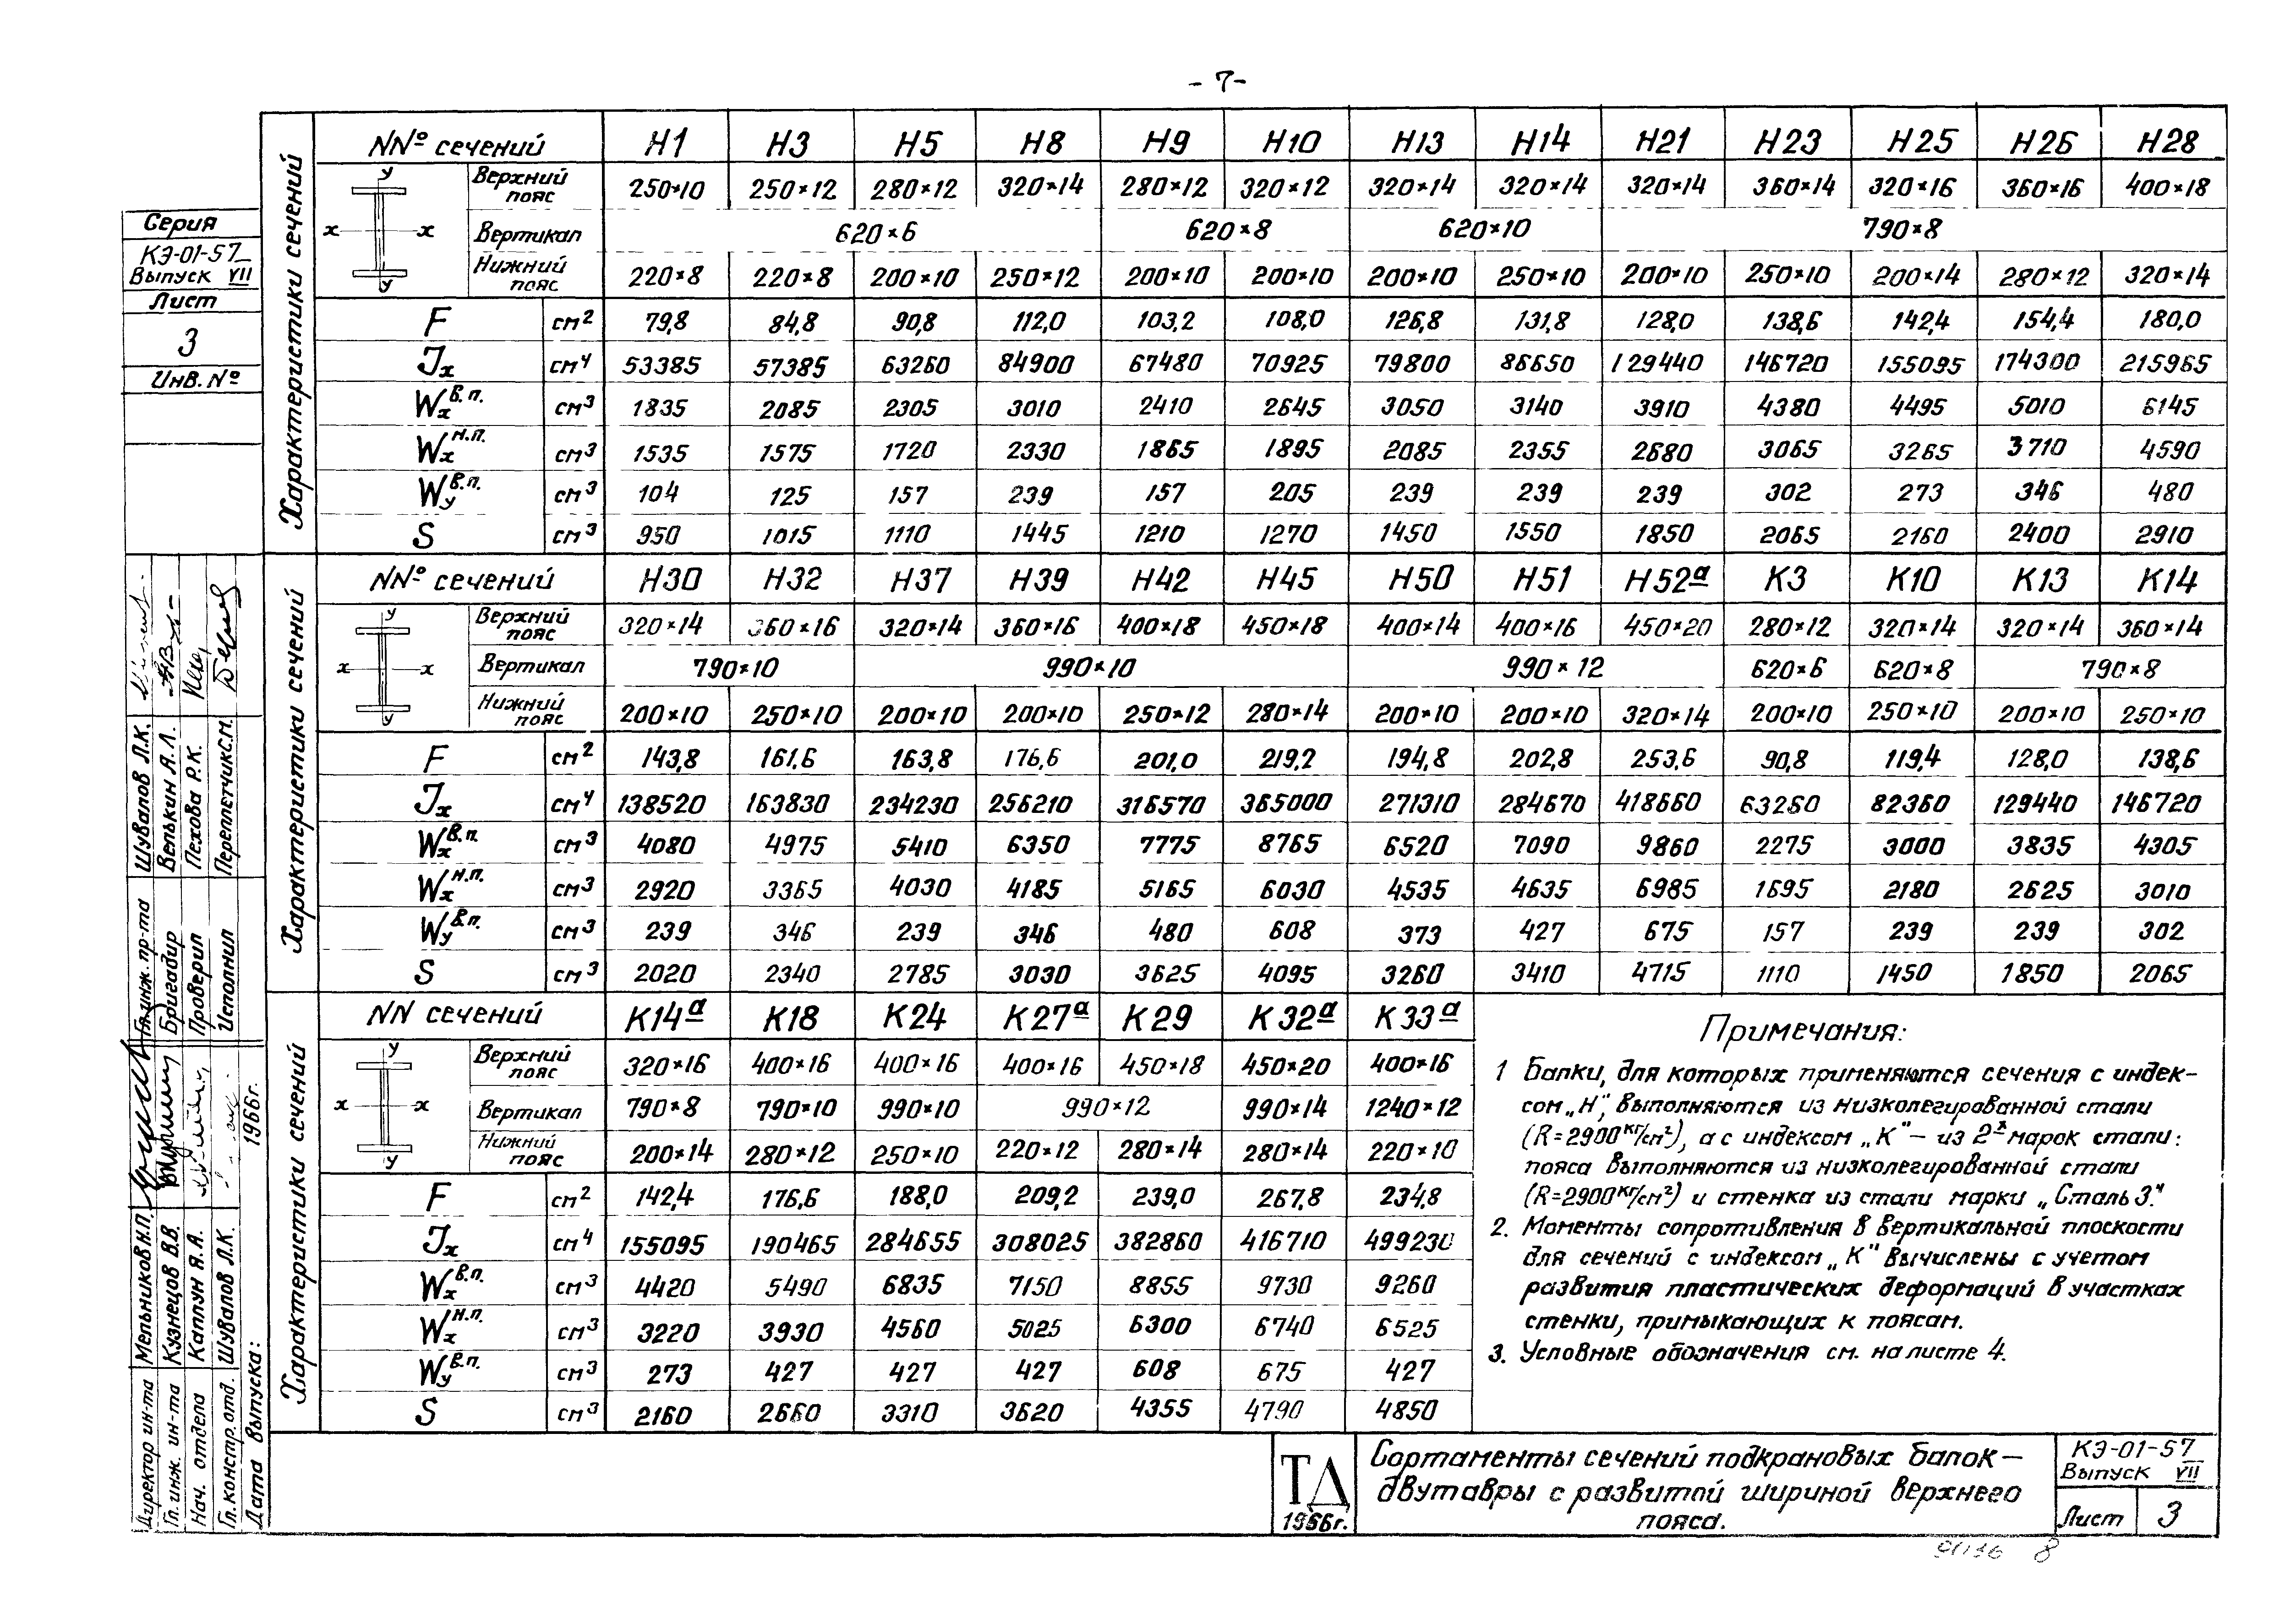 - 7 -
Характеристики сечений
NNº сечений H1 H3 H5 H8 H9 H10 H13 H14 H21 H23 H25 H26 H28
Верхний пояс 250×10 250×12 280×12 320×14 280×12 320×12 320×14 320×14 320×14 360×14 320×16 360×16 400×18
Вертикал 620×6 620×8 620×10 790×8
Нижний пояс 220×8 220×8 200×10 250×12 200×10 200×10 200×10 250×10 200×10 250×10 200×14 280×12 320×14
у х х у
F см2 79,8 84,8 90,8 112,0 103,2 108,0 126,8 131,8 128,0 138,6 142,4 154,4 180,0
Jx см4 53385 57385 63260 84900 67480 70925 79800 86650 129440 146720 155095 174300 215965
Wx в.п. см3 1835 2085 2305 3010 2410 2645 3050 3140 3910 4380 4495 5010 6145
Wx н.п. см3 1535 1575 1720 2330 1865 1895 2085 2355 2680 3065 3265 3710 4590
Wу в.п. см3 104 125 157 239 157 205 239 239 239 302 273 346 480
S см3 950 1015 1110 1445 1210 1270 1450 1550 1850 2065 2160 2400 2910
Характеристики сечений
NNº сечений H30 H32 H37 H39 H42 H45 H50 H51 H52а K3 K10 K13 K14
Верхний пояс 320×14 360×16 320×14 360×16 400×18 450×18 400×14 400×16 450×20 280×12 320×14 320×14 360×14
Вертикал 790×10 990×10 990×12 620×6 620×8 790×8
Нижний пояс 200×10 250×10 200×10 200×10 250×12 280×14 200×10 200×10 320×14 200×10 250×10 200×10 250×10
у х х у
F см2 143,8 161,6 163,8 176,6 201,0 219,2 194,8 202,8 253,6 90,8 119,4 128,0 138,6
Jx см4 138520 163830 234230 256210 316570 365000 271310 284670 418660 63260 82360 129440 146720
Wx в.п. см3 4080 4975 5410 6350 7775 8765 6520 7090 9860 2275 3000 3835 4305
Wx н.п. см3 2920 3365 4030 4185 5165 6030 4535 4635 6985 1695 2180 2625 3010
Wу в.п. см3 239 346 239 346 480 608 373 427 675 157 239 239 302
S см3 2020 2340 2785 3030 3625 4095 3260 3410 4715 1110 1450 1850 2065
Характеристики сечений
NN сечений K14а K18 K24 K27а K29 K32а K33а
Верхний пояс 320×16 400×16 400×16 400×16 450×18 450×20 400×16
Вертикал 790×8 790×10 990×10 990×12 990×14 1240×12
Нижний пояс 200×14 280×12 250×10 220×12 280×14 280×14 220×10
у х х у
F см2 142,4 176,6 188,0 209,2 239,0 267,8 234,8
Jx см4 155095 190465 284655 308025 382860 416710 499230
Wx в.п. см3 4420 5490 6835 7150 8855 9730 9260
Wx н.п. см3 3220 3930 4560 5025 6300 6740 6525
Wу в.п. см3 273 427 427 427 608 675 427
S см3 2160 2660 3310 3620 4355 4790 4850
Примечания:
1 Балки, для которых применяются сечения с индек-
сом „Н", выполняются из низколегированной стали
(R=2900кг/см²), а с индексом „К" – из 2х марок стали:
пояса выполняются из низколегированной стали
(R=2900кг/см²) и стенка из стали марки „Сталь 3."
2. Моменты сопротивления в вертикальной плоскости
для сечений с индексом „К" вычислены с учетом
развития пластических деформаций в участках
стенки, примыкающих к поясам.
3. Условные обозначения см. на листе 4.
ТД
1966г.
Сортаменты сечений подкрановых балок –
двутавры с развитой шириной верхнего
пояса.
КЭ-01-57
Выпуск VII
Лист 3
8
Серия
КЭ-01-57
Выпуск VII
Лист
3
Инв. Nº
Гл. инж. пр-та Шувалов Л.К.
Бригадир Велькин А.Л.
Проверил Пехова Р.К.
Исполнил Переплетчик С.М.
Директор ин-та Мельников Н.П.
Гл. инж. ин-та Кузнецов В.В.
Нач. отдела Каплун Я.А.
Гл. констр. отд. Шувалов Л.К.
Дата выпуска: 1966г.